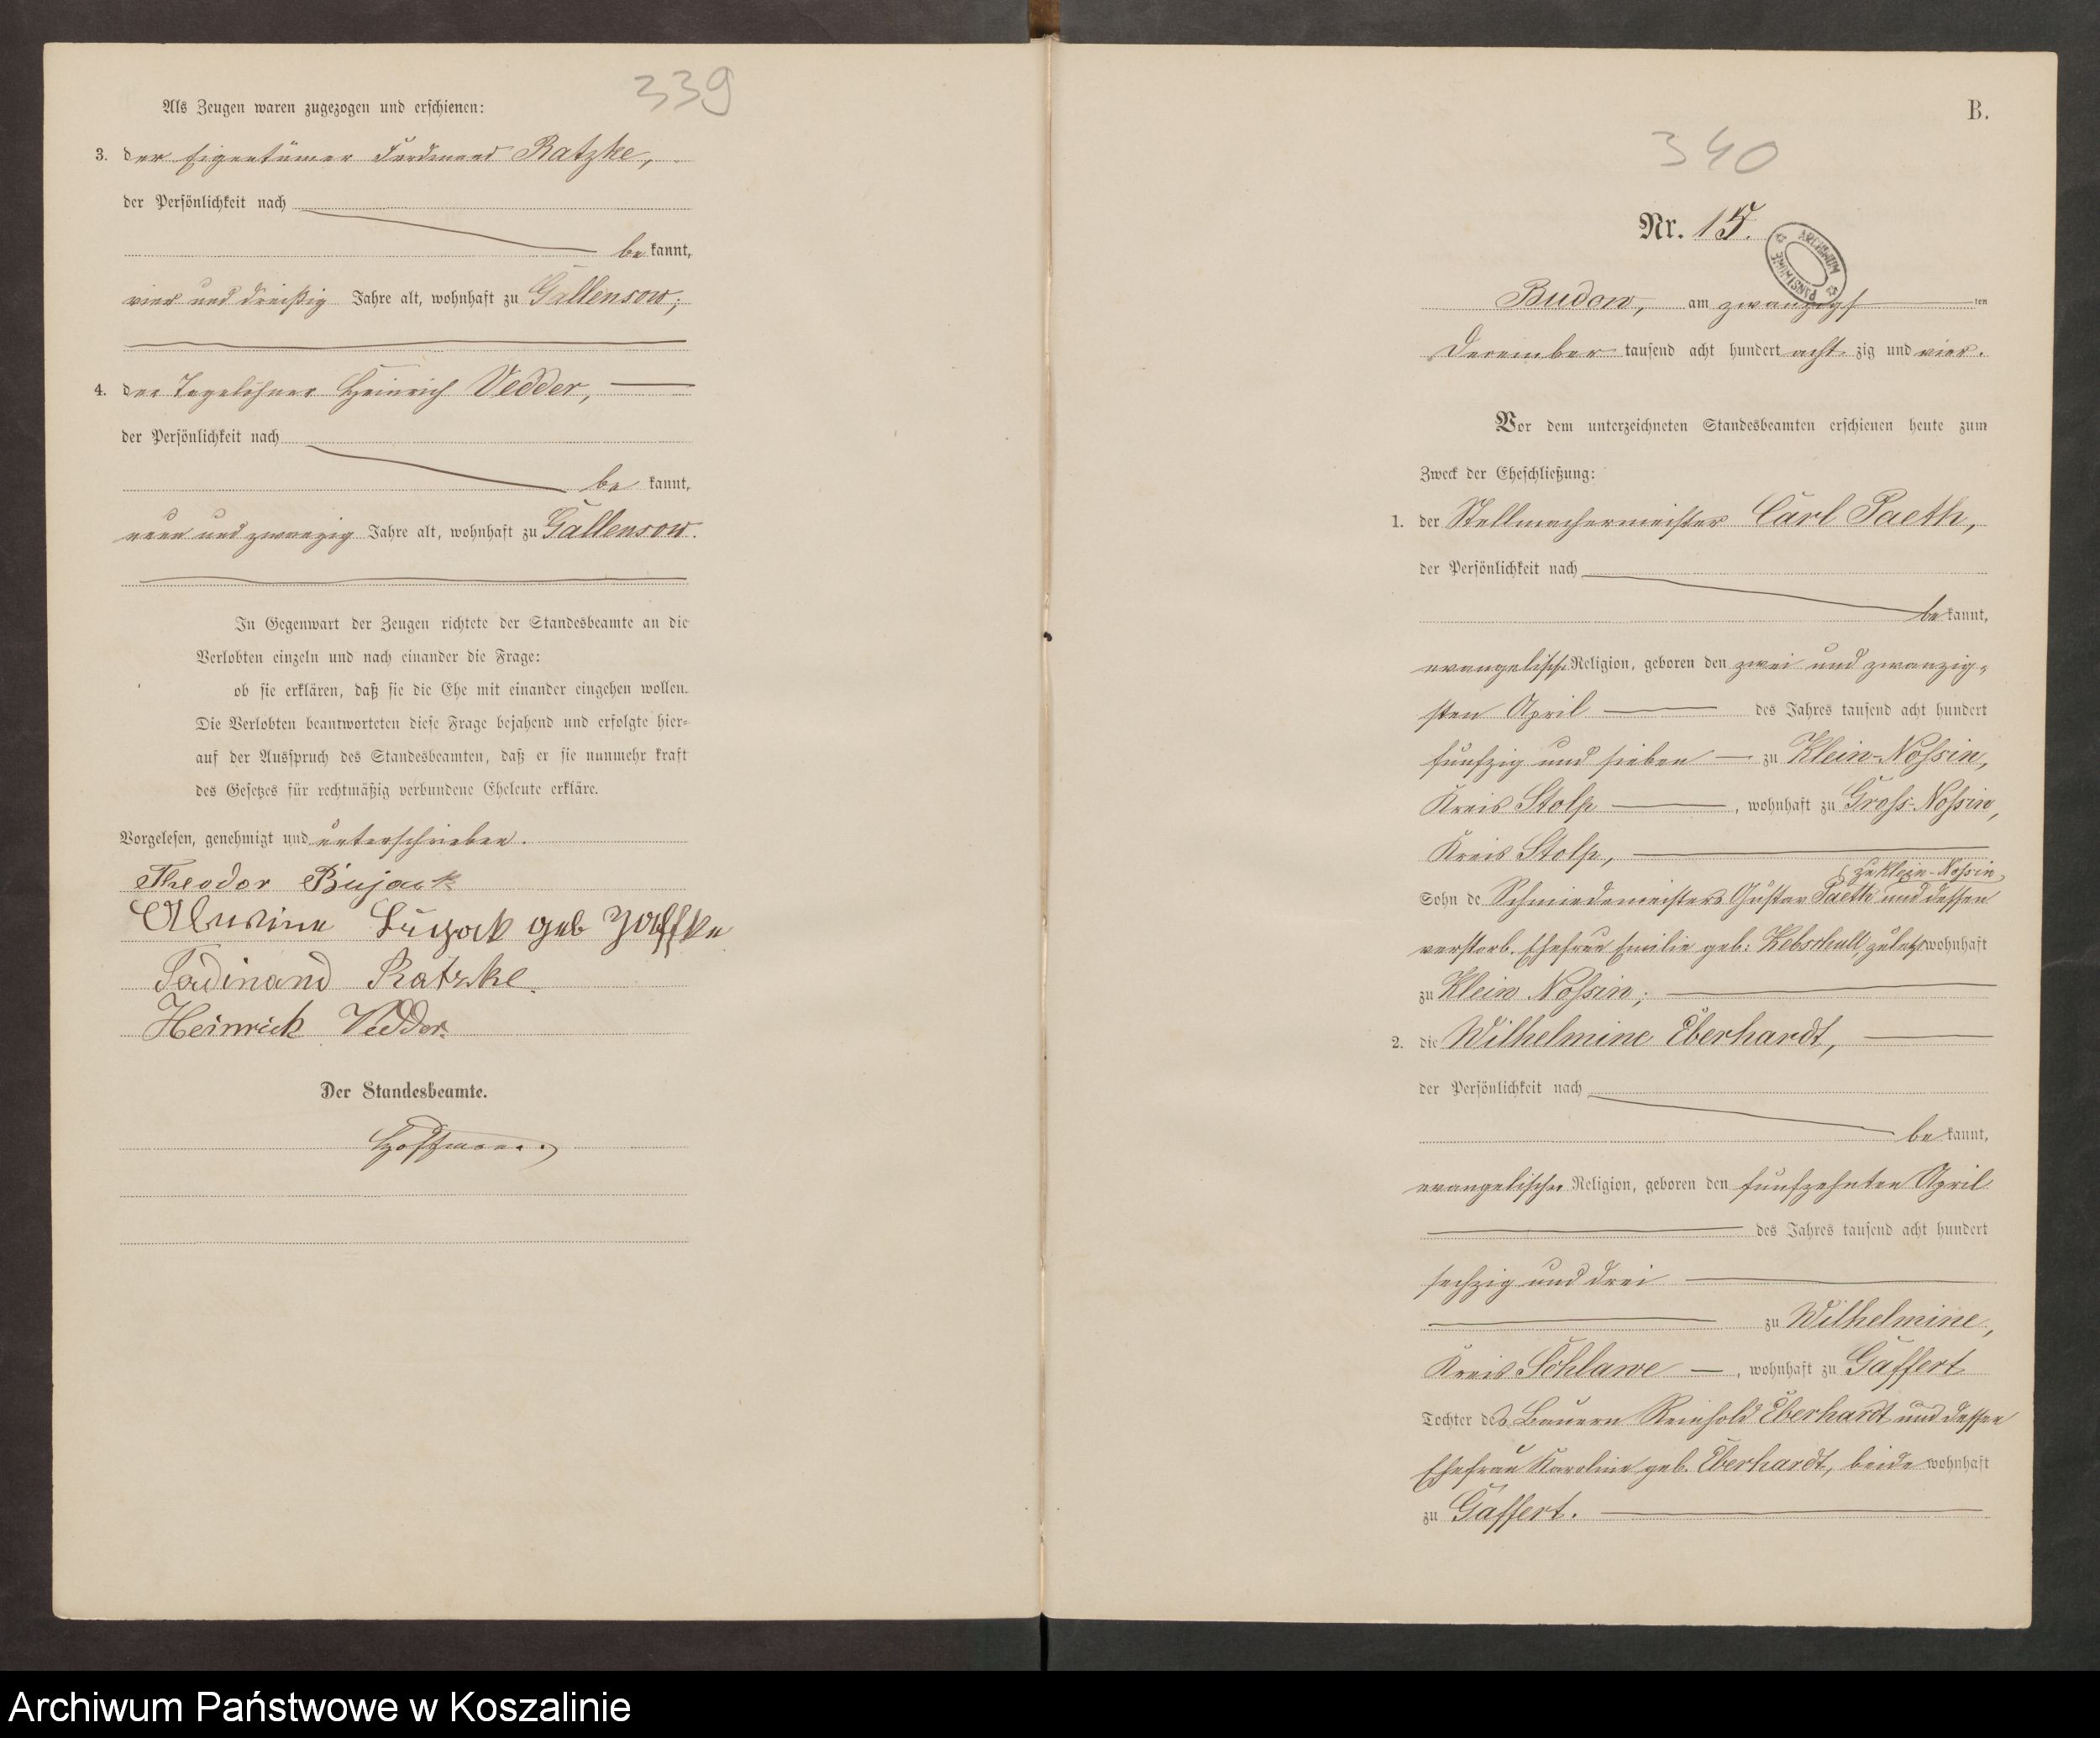 339
Als Zeugen waren zugezogen und erschienen:
3. der Eigentümer Ferdinand Ratzke,
der Persönlichkeit nach
be kannt,
vier und dreißig Jahre alt, wohnhaft zu Gallensow;
4. der Tagelöhner Heinrich Vedder,
der Persönlichkeit nach
be kannt,
neun und zwanzig Jahre alt, wohnhaft zu Gallensow.
In Gegenwart der Zeugen richtete der Standesbeamte an die
Verlobten einzeln und nach einander die Frage:
ob sie erklären, daß sie die Ehe mit einander eingehen wollen.
Die Verlobten beantworteten diese Frage bejahend und erfolgte hier-
auf der Ausspruch des Standesbeamten, daß er sie nunmehr kraft
des Gesetzes für rechtmäßig verbundene Eheleute erkläre.
Vorgelesen, genehmigt und unterschrieben.
Theodor Bujack
geb
Ferdinand Ratzke.
Heinrich Vedder.
Der Standesbeamte.
Hoffmann.
B.
340
Nr. 15.
ARCHIWUM PAŃSTWOWE
Budow, am zwanzigsten
December tausend acht hundert acht zig und vier.
Vor dem unterzeichneten Standesbeamten erschienen heute zum
Zweck der Eheschließung:
1. der Stellmachermeister Carl Paeth,
der Persönlichkeit nach
be kannt,
evangelischer Religion, geboren den zwei und zwanzig-
sten April des Jahres tausend acht hundert
fünfzig und sieben zu Klein-Nossin,
Kreis Stolp, wohnhaft zu Gross-Nossin,
Kreis Stolp,
zu Klein-Nossin
Sohn de Schmiedemeisters Gustav Paeth und dessen
verstorb. Ehefrau Emilie geb: zuletzt wohnhaft
zu Klein Nossin;
2. die Wilhelmine Eberhardt,
der Persönlichkeit nach
be kannt,
evangelischer Religion, geboren den fünfzehnten April
des Jahres tausend acht hundert
sechzig und drei
zu Wilhelmine,
Kreis Schlawe, wohnhaft zu Gaffert
Tochter des Bauern Reinhold Eberhardt und dessen
Ehefrau Karoline geb. Eberhardt, beide wohnhaft
zu Gaffert.
Archiwum Państwowe w Koszalinie